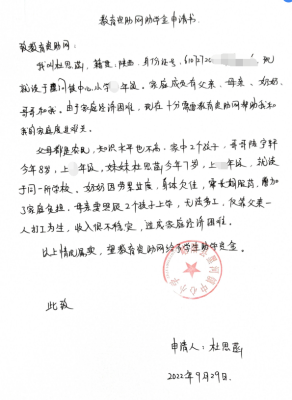 教育资助网助学金申请书
致教育资助网:
我叫杜思菡,籍贯:陕西,身份证号:610722 现
就读于 镇中心小学 年级。家庭成员有父亲、母亲、奶奶、
哥哥和我。由于家庭经济困难,现在十分需要教育资助网帮助我和
我的家庭度过难关。
父母都是农民,知识水平也不高,家中2个孩子,哥哥 宁轩
今年8岁,上 年级。妹妹杜思菡今年7岁,上 年级,就读
于同一所学校。奶奶因劳累过度,身体欠佳,需长期服药,增加
了家庭负担。母亲需照顾2个孩子上学,无法务工,仅靠父亲一
人打工为生,收入很不稳定,造成家庭经济困难。
以上情况属实,望教育资助网给予学生助学资金。
此致
镇中心小学
申请人:杜思菡
2022年9月29日.